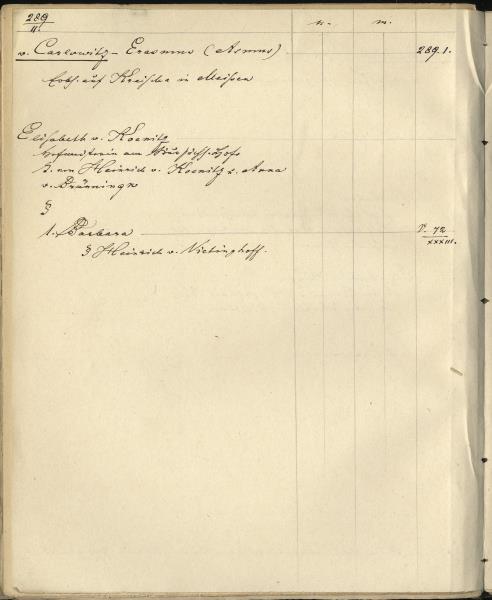 289
II.
n. m.
v. Carlowitz – Erasmus (Asmus) 289.1.
Erbh. auf Kreischa in Meißen
Elisabeth v. Koenitz
Hofmeisterin am Kursächs. Hofe
T. von Heinrich v. Koenitz u. Anna
v. Brünningk
§
1. Barbara V. 72
XXXIII.
§ Heinrich v. Vietinghoff.